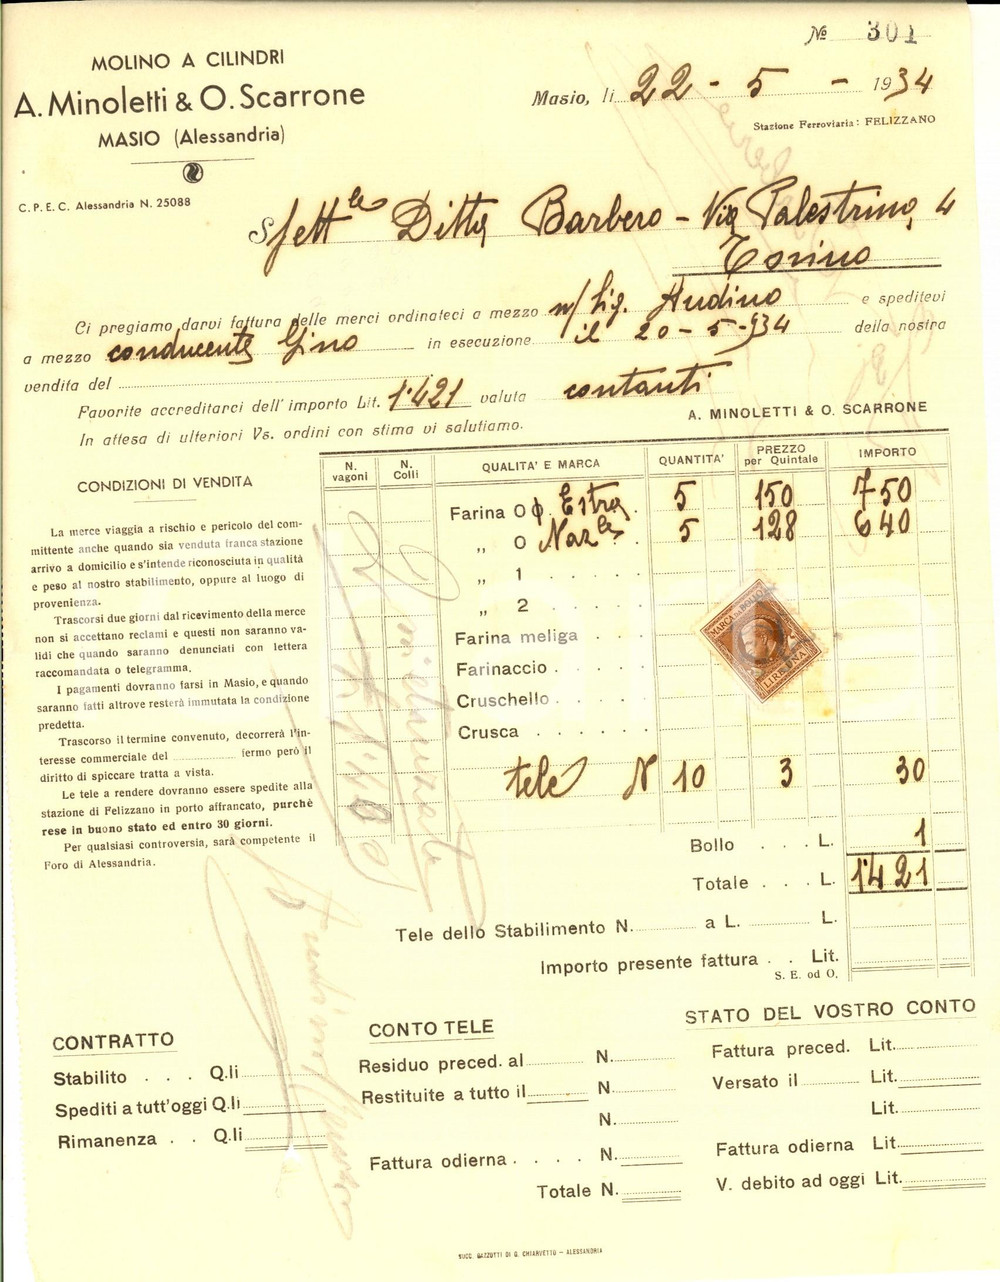 № 301
MOLINO A CILINDRI
A. Minoletti & O. Scarrone
MASIO (Alessandria)
C. P. E. C. Alessandria N. 25088
Masio, li 22 - 5 - 1934
Stazione Ferroviaria: FELIZZANO
Spett le Ditta Barbero - Via Palestrina, 4
Torino
Ci pregiamo darvi fattura delle merci ordinateci a mezzo n/ Sig. Audino e speditevi
a mezzo conducente Gino in esecuzione il 20-5-934 della nostra
vendita del
Favorite accreditarci dell'importo Lit. 1421 valuta contanti
In attesa di ulteriori Vs. ordini con stima vi salutiamo.
A. MINOLETTI & O. SCARRONE
CONDIZIONI DI VENDITA
La merce viaggia a rischio e pericolo del com-
mittente anche quando sia venduta franca stazione
arrivo a domicilio e s'intende riconosciuta in qualità
e peso al nostro stabilimento, oppure al luogo di
provenienza.
Trascorsi due giorni dal ricevimento della merce
non si accettano reclami e questi non saranno va-
lidi che quando saranno denunciati con lettera
raccomandata o telegramma.
I pagamenti dovranno farsi in Masio, e quando
saranno fatti altrove resterà immutata la condizione
predetta.
Trascorso il termine convenuto, decorrerà l'in-
teresse commerciale del fermo però il
diritto di spiccare tratta a vista.
Le tele a rendere dovranno essere spedite alla
stazione di Felizzano in porto affrancato, purchè
rese in buono stato ed entro 30 giorni.
Per qualsiasi controversia, sarà competente il
Foro di Alessandria.
N. vagoni N. Colli QUALITA' E MARCA QUANTITA' PREZZO per Quintale IMPORTO
Farina 0 0 Extra 5 150 750
„ 0 Naz le 5 128 640
„ 1
„ 2
Farina meliga
Farinaccio
Cruschello
Crusca
MARCA DA BOLLO
LIRE UNA
tele N 10 3 30
Bollo . . . L. 1
Totale . . . L. 1421
Tele dello Stabilimento N. a L. L.
Importo presente fattura . . Lit.
S. E. od O.
CONTRATTO
Stabilito . . . Q.li
Spediti a tutt'oggi Q.li
Rimanenza . . Q.li
CONTO TELE
Residuo preced. al N.
Restituite a tutto il N.
N.
Fattura odierna . . . . N.
Totale N.
STATO DEL VOSTRO CONTO
Fattura preced. Lit.
Versato il Lit.
Lit.
Fattura odierna Lit.
V. debito ad oggi Lit.
SUCC. GAZZOTTI DI G. CHIARVETTO - ALESSANDRIA